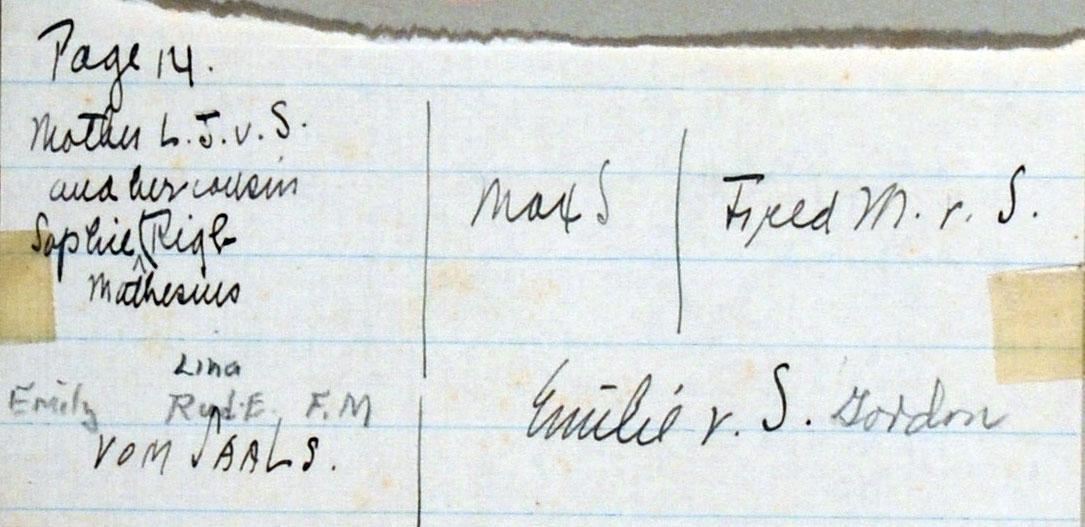 Page 14.
Mother L.J.v.S.
and her cousin
Sophie (Rigl
Mathesius
Max S
Fred M. v. S.
Lina
Emily Rud.E. F.M
VOM SAALS.
Emilie v. S. Gordon